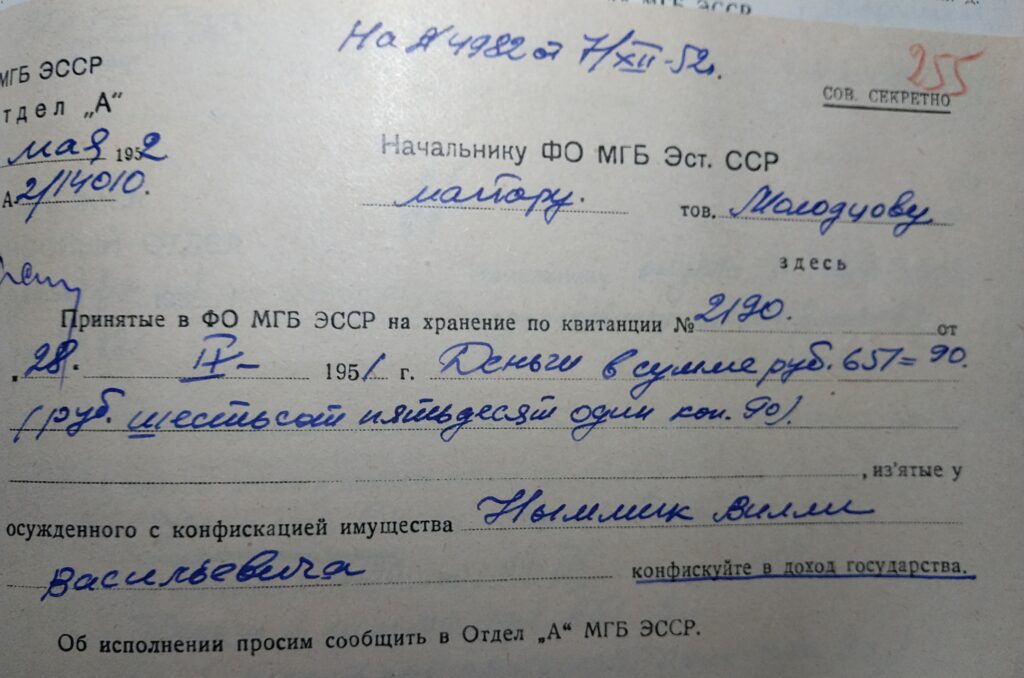 На № 4982 от 7/XII-52г.
255
МГБ ЭССР
СОВ. СЕКРЕТНО
тдел „А“
мая 1952
Начальнику ФО МГБ Эст. ССР
А-2/14010.
майору. тов. Молодцову
здесь
Принятые в ФО МГБ ЭССР на хранение по квитанции № 2190. от
„28. IX- 1951 г. Деньги в сумме руб. 651=90.
(руб. шестьсот пятьдесят один коп. 90).
, из'ятые у
осужденного с конфискацией имущества Ныммик Вилли
Васильевича конфискуйте в доход государства.
Об исполнении просим сообщить в Отдел „А“ МГБ ЭССР.